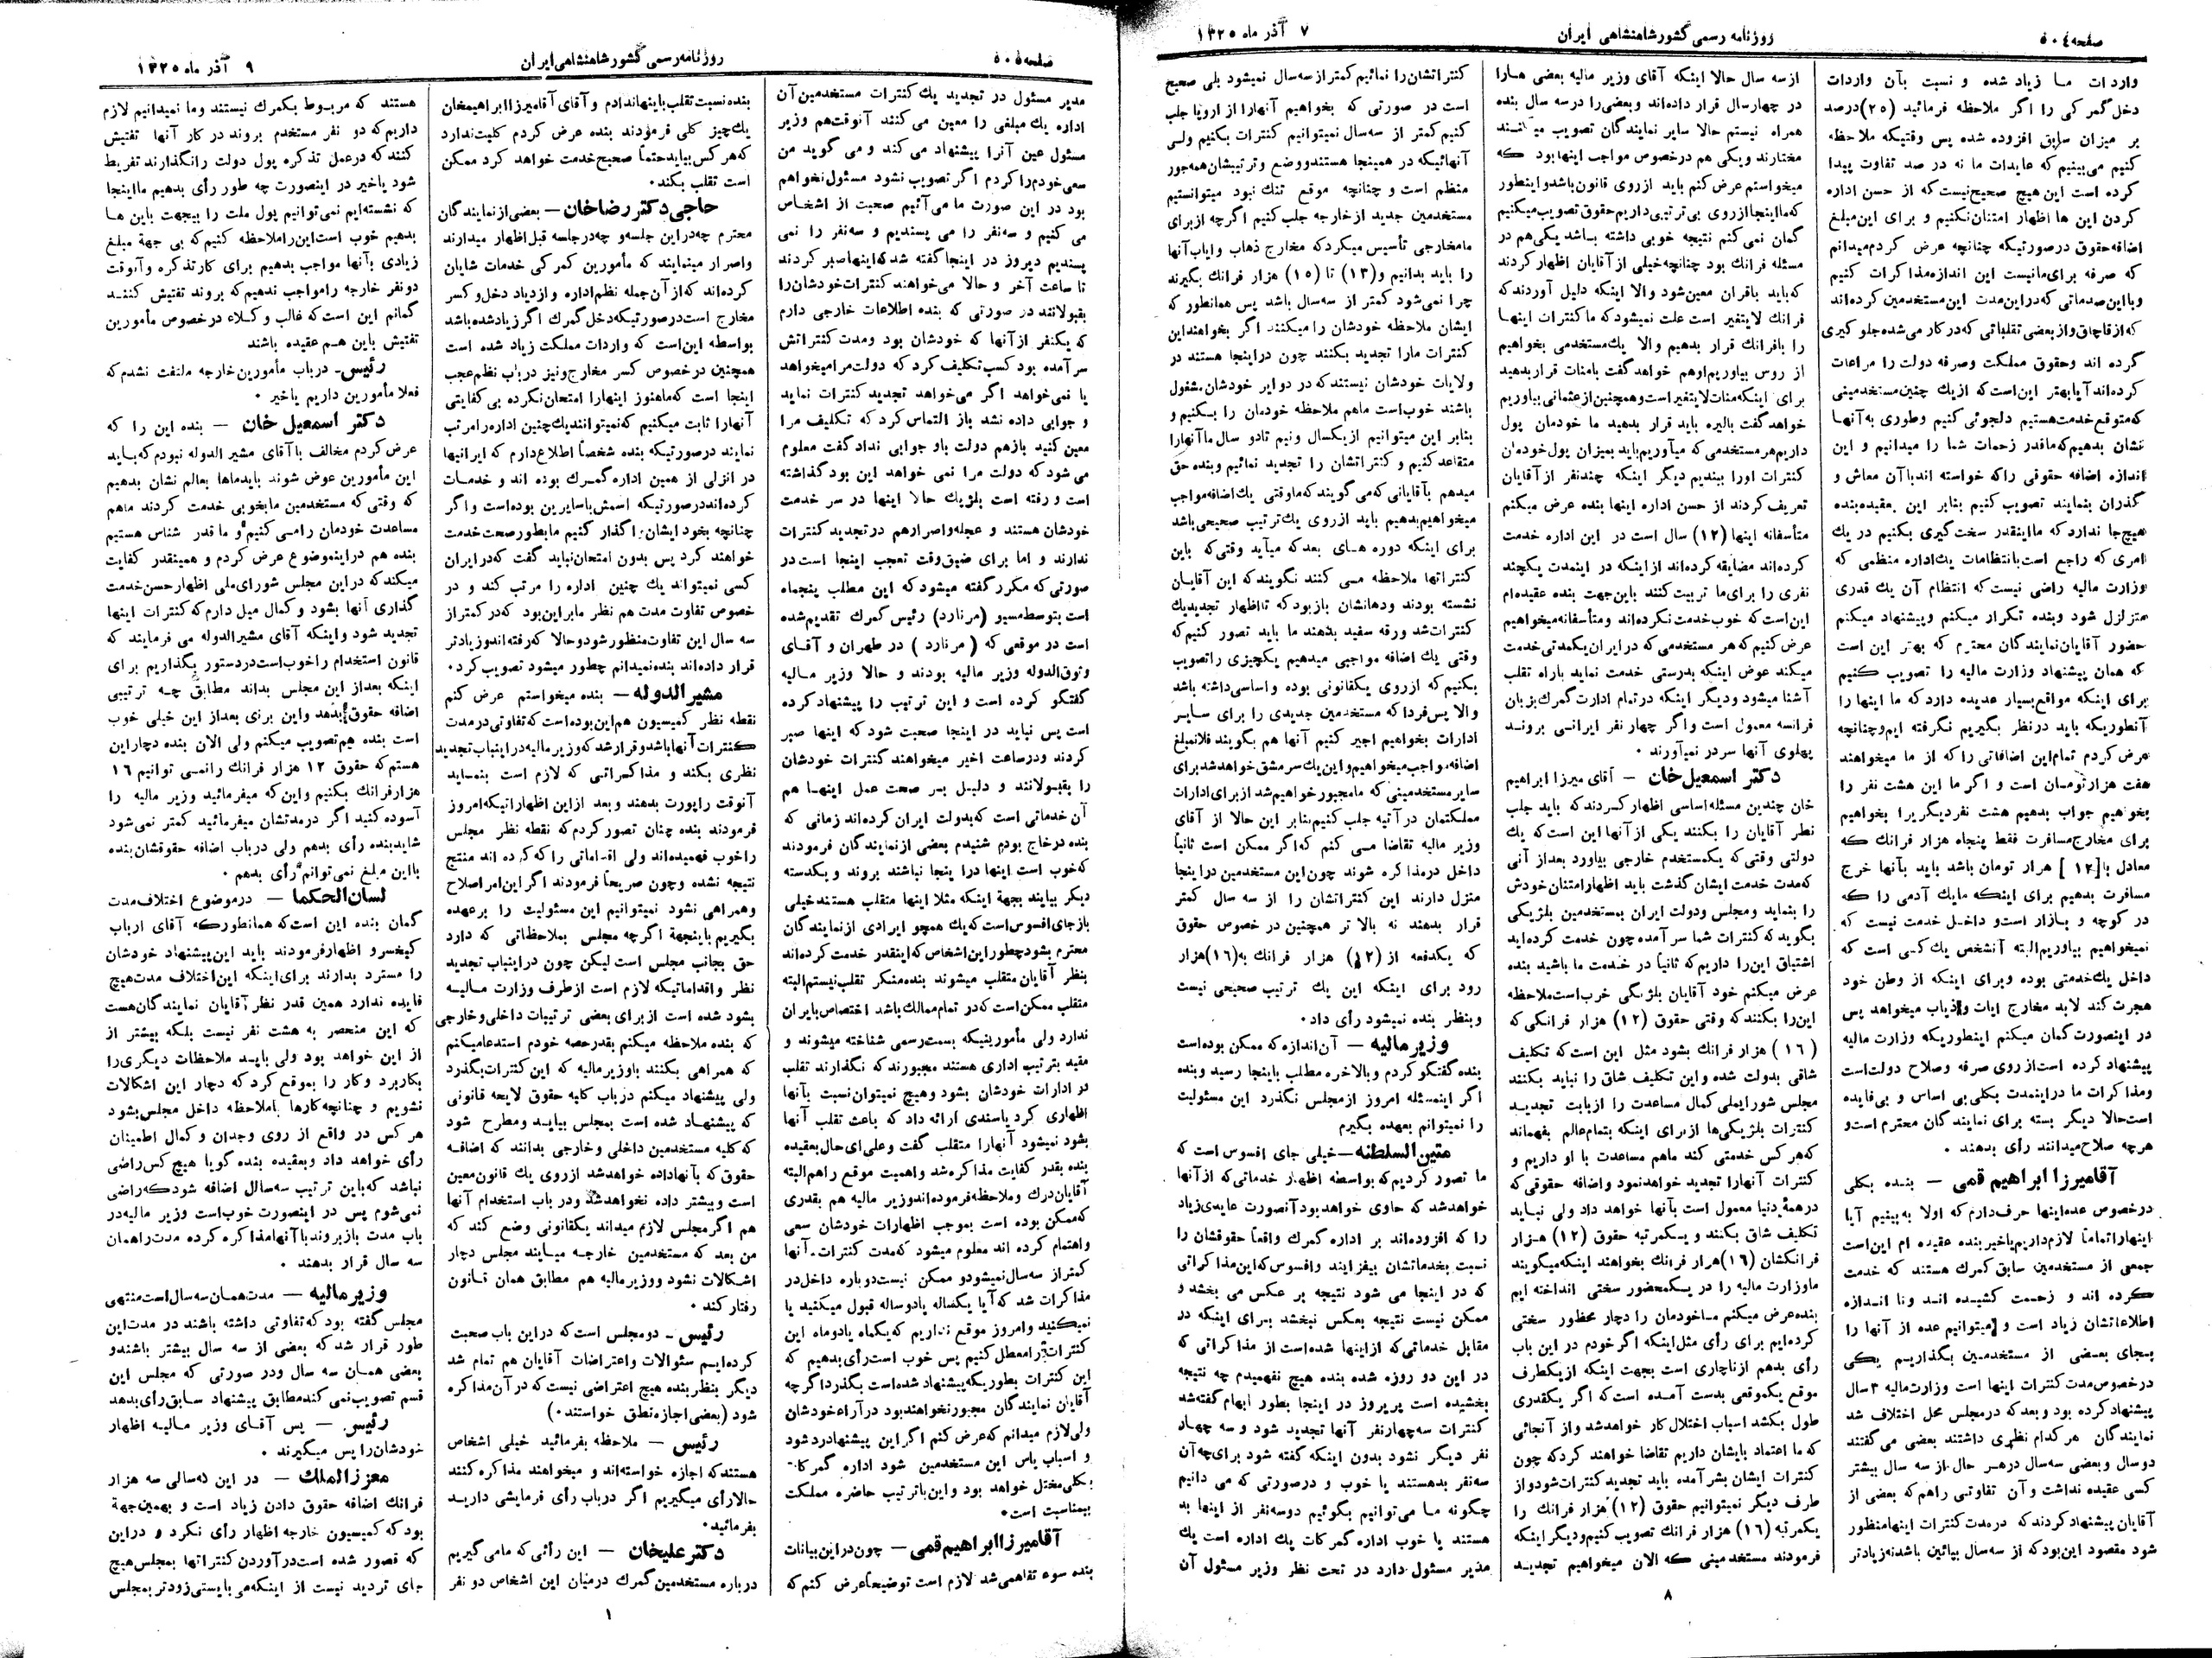 صفحه ۵۰۴
روزنامه رسمی کشور شاهنشاهی ایران
۷ آذر ماه ۱۳۲۵
واردات ما زیاد شده و نسبت بآن واردات
دخل گمرکی را اگر ملاحظه فرمائید (۲۵) درصد
بر میزان سابق افزوده شده پس وقتیکه ملاحظه
کنیم می‌بینیم که عایدات ما نه در صد تفاوت پیدا
کرده است این هیچ صحیح نیست که از حسن اداره
کردن این ها اظهار امتنان نکنیم و برای این مبلغ
اضافه حقوق در صورتیکه چنانچه عرض کردم میدانم
که صرفه برای ما نیست این اندازه مذاکرات کنیم
و با این صدماتی که در این مدت این مستخدمین کرده‌اند
که از قاچاق و از بعضی تقلباتی که در کار می‌شده جلوگیری
کرده اند و حقوق مملکت و صرفه دولت را مراعات
کرده‌اند آیا بهتر این است که از یک چنین مستخدمینی
که متوقع خدمت هستیم دلجوئی کنیم و طوری به آنها
نشان بدهیم که ما قدر زحمات شما را میدانیم و این
اندازه اضافه حقوقی را که خواسته اند با آن معاش و
گذران بنمایند تصویب کنیم بنابر این بعقیده بنده
هیچ جا ندارد که ما اینقدر سخت گیری بکنیم در یک
امری که راجع است بانتظامات یک اداره منظمی که
وزارت مالیه راضی نیست که انتظام آن یک قدری
متزلزل شود و بنده تکرار میکنم و پیشنهاد میکنم
حضور آقایان نمایندگان محترم که بهتر این است
که همان پیشنهاد وزارت مالیه را تصویب کنیم
برای اینکه مواقع بسیار عدیده دارد که ما اینها را
آنطوریکه باید در نظر بگیریم نگرفته ایم و چنانچه
عرض کردم تمام این اضافاتی را که از ما میخواهند
هفت هزار تومان است و اگر ما این هشت نفر را
بخواهیم جواب بدهیم هشت نفر دیگر را بخواهیم
برای مخارج مسافرت فقط پنجاه هزار فرانک که
معادل با [۱۲] هزار تومان باشد باید بآنها خرج
مسافرت بدهیم برای اینکه ما یک آدمی را که
در کوچه و بازار است و داخل خدمت نیست که
نمیخواهیم بیاوریم البته آنشخص یک کسی است که
داخل یک خدمتی بوده و برای اینکه از وطن خود
هجرت کند لابد مخارج ایاب و ذهاب میخواهد پس
در اینصورت گمان میکنم اینطوریکه وزارت مالیه
پیشنهاد کرده است از روی صرفه و صلاح دولت است
و مذاکرات ما در اینمدت بکلی بی اساس و بی فایده
است حالا دیگر بسته برای نمایندگان محترم است و
هرچه صلاح میدانند رأی بدهند .
آقا میرزا ابراهیم قمی — بنده بکلی
در خصوص عده اینها حرف دارم که اولا به بینیم آیا
اینها را تماماً لازم داریم یا خیر بنده عقیده ام این است
جمعی از مستخدمین سابق گمرک هستند که خدمت
کرده اند و زحمت کشیده اند و تا اندازه
اطلاعاتشان زیاد است و میتوانیم عده از آنها را
بجای بعضی از مستخدمین بگذاریم یکی
در خصوص مدت کنترات اینها است وزارت مالیه ۳ سال
پیشنهاد کرده بود و بعد که در مجلس محل اختلاف شد
نمایندگان هر کدام نظری داشتند بعضی می گفتند
دو سال و بعضی سه سال در هر حال از سه سال بیشتر
کسی عقیده نداشت و آن تفاوتی را هم که بعضی از
آقایان پیشنهاد کردند که در مدت کنترات اینها منظور
شود مقصود این بود که از سه سال بپائین باشد نه زیادتر
از سه سال حالا اینکه آقای وزیر مالیه بعضی ها را
در چهار سال قرار داده‌اند و بعضی را در سه سال بنده
همراه نیستم حالا سایر نمایندگان تصویب میکنند
مختارند و یکی هم در خصوص مواجب اینها بود که
میخواستم عرض کنم باید از روی قانون باشد و اینطور
که ما اینجا از روی بی ترتیبی داریم حقوق تصویب میکنیم
گمان نمی کنم نتیجه خوبی داشته باشد یکی هم در
مسئله فرانک بود چنانچه خیلی از آقایان اظهار کردند
که باید باقران معین شود والا اینکه دلیل آوردند که
فرانک لایتغیر است علت نمیشود که ما کنترات اینها
را بافرانک قرار بدهیم والا یک مستخدمی بخواهیم
از روس بیاوریم او هم خواهد گفت بامنات قرار بدهید
برای اینکه منات لایتغیر است و همچنین از عثمانی بیاوریم
خواهد گفت بالیره باید قرار بدهید ما خودمان پول
داریم هر مستخدمی که میآوریم باید بمیزان پول خودمان
کنترات او را ببندیم دیگر اینکه چند نفر از آقایان
تعریف کردند از حسن اداره اینها بنده عرض میکنم
متأسفانه اینها (۱۲) سال است در این اداره خدمت
کرده‌اند مضایقه کرده‌اند از اینکه در اینمدت یکچند
نفری را برای ما تربیت کنند باین جهت بنده عقیده ام
این است که خوب خدمت نکرده‌اند و متأسفانه میخواهیم
عرض کنیم که هر مستخدمی که در ایران یکمدتی خدمت
میکند عوض اینکه بدرستی خدمت نماید باراه تقلب
آشنا میشود و دیگر اینکه در تمام ادارات گمرک بزبان
فرانسه معمول است و اگر چهار نفر ایرانی بروند
پهلوی آنها سر در نمیآورند .
دکتر اسمعیل خان — آقای میرزا ابراهیم
خان چندین مسئله اساسی اظهار کردند که باید جلب
نظر آقایان را بکنند یکی از آنها این است که یک
دولتی وقتی که یکمستخدم خارجی بیاورد بعد از آنی
که مدت خدمت ایشان گذشت باید اظهار امتنان خودش
را بنماید و مجلس و دولت ایران بمستخدمین بلژیکی
بگوید که کنترات شما سر آمده چون خدمت کرده اید
اشتیاق این را داریم که ثانیاً در خدمت ما باشید بنده
عرض میکنم خود آقایان بلژیکی خوب است ملاحظه
این را بکنند که وقتی حقوق (۱۲) هزار فرانکی که
(۱۶) هزار فرانک بشود مثل این است که تکلیف
شاقی بدولت شده و این تکلیف شاق را نباید بکنند
مجلس شورایملی کمال مساعدت را از بابت تجدید
کنترات بلژیکی‌ها از برای اینکه بتمام عالم بفهماند
که هر کس خدمتی کند ما هم مساعدت با او داریم و
کنترات آنها را تجدید خواهد نمود و اضافه حقوقی که
در همۀ دنیا معمول است بآنها خواهد داد ولی نباید
تکلیف شاق بکنند و یکمرتبه حقوق (۱۲) هزار
فرانکشان (۱۶) هزار فرانک بخواهند اینکه میگویند
ما وزارت مالیه را در یکمحضور سختی انداخته ایم
بنده عرض میکنم ما خودمان را دچار محظور سختی
کرده‌ایم برای رأی مثل اینکه اگر خودم در این باب
رأی بدهم از ناچاری است بجهت اینکه از یکطرف
موقع یکموقعی بدست آمده است که اگر یکقدری
طول بکشد اسباب اختلال کار خواهد شد و از آنجائی
که ما اعتماد بایشان داریم تقاضا خواهند کرد که چون
کنترات ایشان بسر آمده باید تجدید کنترات شود و از
طرف دیگر نمیتوانیم حقوق (۱۲) هزار فرانک را
یکمرتبه (۱۶) هزار فرانک تصویب کنیم و دیگر اینکه
فرمودند مستخدمینی که الان میخواهیم تجدید
کنتراتشان را نمائیم کمتر از سه سال نمیشود بلی صحیح
است در صورتی که بخواهیم آنها را از اروپا جلب
کنیم کمتر از سه سال نمیتوانیم کنترات بکنیم ولی
آنهائیکه در همینجا هستند و وضع و ترتیبشان همه جور
منظم است و چنانچه موقع تنگ نبود میتوانستیم
مستخدمین جدید از خارجه جلب کنیم اگر چه از برای
ما مخارجی تأسیس میکرد که مخارج ذهاب و ایاب آنها
را باید بدانیم و (۱۳) تا (۱۵) هزار فرانک بگیرند
چرا نمی شود کمتر از سه سال باشد پس همانطور که
ایشان ملاحظه خودشان را میکنند اگر بخواهند این
کنترات ما را تجدید بکنند چون در اینجا هستند در
ولایات خودشان نیستند که در دوایر خودشان مشغول
باشند خوب است ما هم ملاحظه خودمان را بکنیم و
بنابر این میتوانیم از یکسال و نیم تا دو سال ما آنها را
متقاعد کنیم و کنتراتشان را تجدید نمائیم و بنده حق
میدهم بآقایانی که می گویند که ما وقتی یک اضافه مواجب
میخواهیم بدهیم باید از روی یک ترتیب صحیحی باشد
برای اینکه دوره های بعد که میآید وقتی که باین
کنتراتها ملاحظه می کنند نگویند که این آقایان
نشسته بودند و دهانشان باز بود که تا اظهار تجدید یک
کنترات شد ورقه سفید بدهند ما باید تصور کنیم که
وقتی یک اضافه مواجبی میدهیم یکچیزی را تصویب
بکنیم که از روی یکقانونی بوده و اساسی داشته باشد
والا پس فردا که مستخدمین جدیدی را برای سایر
ادارات بخواهیم اجیر کنیم آنها هم بگویند فلانمبلغ
اضافه مواجب میخواهیم و این یک سرمشق خواهد شد برای
سایر مستخدمینی که ما مجبور خواهیم شد از برای ادارات
مملکتمان در آتیه جلب کنیم بنابر این حالا از آقای
وزیر مالیه تقاضا می کنم که اگر ممکن است ثانیاً
داخل در مذاکره شوند چون این مستخدمین در اینجا
منزل دارند این کنتراتشان را از سه سال کمتر
قرار بدهند نه بالا تر همچنین در خصوص حقوق
که یکدفعه از (۱۲) هزار فرانک به (۱۶) هزار
رود برای اینکه این یک ترتیب صحیحی نیست
و بنظر بنده نمیشود رأی داد.
وزیر مالیه — آن اندازه که ممکن بوده است
بنده گفتگو کردم و بالاخره مطلب باینجا رسید و بنده
اگر اینمسئله امروز از مجلس نگذرد این مسئولیت
را نمیتوانم بعهده بگیرم
متین السلطنه — خیلی جای افسوس است که
ما تصور کردیم که بواسطه اظهار خدماتی که از آنها
خواهد شد که حاوی خواهد بود آنصورت عایدی زیاد
را که افزوده‌اند بر اداره گمرک واقعاً حقوقشان را
نسبت بخدماتشان بیفزایند و افسوس که این مذاکراتی
که در اینجا می شود نتیجه بر عکس می بخشد و
ممکن نیست نتیجه بعکس نبخشد برای اینکه در
مقابل خدماتی که از اینها شده است از مذاکراتی که
در این دو روزه شده بنده هیچ نفهمیدم چه نتیجه
بخشیده است پریروز در اینجا بطور ابهام گفته شد
کنترات سه چهار نفر آنها تجدید شود و سه چهار
نفر دیگر نشود بدون اینکه گفته شود برای چه آن
سه نفر بدهستند یا خوب و در صورتی که می دانیم
چگونه ما می توانیم بگوئیم دو سه نفر از اینها بد
هستند یا خوب اداره گمرکات یک اداره است یک
مدیر مسئول دارد در تحت نظر وزیر مسئول آن
۸
صفحه ۵۰۵
روزنامه رسمی کشور شاهنشاهی ایران
۹ آذر ماه ۱۳۲۵
مدیر مسئول در تجدید یک کنترات مستخدمین آن
اداره یک مبلغی را معین می کنند آنوقت هم وزیر
مسئول عین آنرا پیشنهاد می کند و می گوید من
سعی خودم را کردم اگر تصویب نشود مسئول نخواهم
بود در این صورت ما می آئیم صحبت از اشخاص
می کنیم و سه نفر را می پسندیم و سه نفر را نمی
پسندیم دیروز در اینجا گفته شد که اینها صبر کردند
تا ساعت آخر و حالا می خواهند کنترات خودشان را
بقبولانند در صورتی که بنده اطلاعات خارجی دارم
که یکنفر از آنها که خودشان بود و مدت کنتراتش
سر آمده بود کسب تکلیف کرد که دولت مرا میخواهد
یا نمی خواهد اگر می خواهد تجدید کنترات نماید
و جوابی داده نشد باز التماس کرد که تکلیف مرا
معین کنید باز هم دولت باو جوابی نداد گفت معلوم
می شود که دولت مرا نمی خواهد این بود گذاشته
است و رفته است بلژیک حالا اینها در سر خدمت
خودشان هستند و عجله و اصرار هم در تجدید کنترات
ندارند و اما برای ضیق وقت تعجب اینجا است در
صورتی که مکرر گفته میشود که این مطلب پنجماه
است بتوسط مسیو (مرنارد) رئیس گمرک تقدیم شده
است در موقعی که (مرنارد) در طهران و آقای
وثوق الدوله وزیر مالیه بودند و حالا وزیر مالیه
گفتگو کرده است و این ترتیب را پیشنهاد کرده
است پس نباید در اینجا صحبت شود که اینها صبر
کردند و در ساعت اخیر میخواهند کنترات خودشان
را بقبولانند و دلیل بر صحت عمل اینها هم
آن خدماتی است که بدولت ایران کرده‌اند زمانی که
بنده در خارج بودم شنیدم بعضی از نمایندگان فرمودند
که خوب است اینها در اینجا نباشند بروند و یکدسته
دیگر بیایند بجهة اینکه مثلا اینها متقلب هستند خیلی
باز جای افسوس است که یک همچو ایرادی از نمایندگان
محترم بشود چطور این اشخاص که اینقدر خدمت کرده‌اند
بنظر آقایان متقلب میشوند بنده منکر تقلب نیستم البته
متقلب ممکن است که در تمام ممالک باشد اختصاص بایران
ندارد ولی مأمورینیکه بسمت رسمی شناخته میشوند و
مقید بترتیب اداری هستند مجبورند که نگذارند تقلب
در ادارات خودشان بشود و هیچ نمیتوان نسبت بآنها
اظهاری کرد یا سندی ارائه داد که باعث تقلب آنها
بشود نمیشود آنها را متقلب گفت و علی ای حال بعقیده
بنده بقدر کفایت مذاکره شد و اهمیت موقع را هم البته
آقایان درک و ملاحظه فرموده اند وزیر مالیه هم بقدری
که ممکن بوده است بموجب اظهارات خودشان سعی
و اهتمام کرده اند معلوم میشود که مدت کنترات آنها
کمتر از سه سال نمیشود و ممکن نیست دوباره داخل در
مذاکرات شد که آیا یکساله یا دو ساله قبول میکنید یا
نمیکنید و امروز موقع نداریم که یکماه یا دو ماه این
کنترات را معطل کنیم پس خوب است رأی بدهیم که
این کنترات بطوریکه پیشنهاد شده است بگذرد اگر چه
آقایان نمایندگان مجبور نخواهند بود در آراء خودشان
ولی لازم میدانم که عرض کنم اگر این پیشنهاد رد شود
و اسباب یأس این مستخدمین شود اداره گمرکات
بکلی مختل خواهد بود و این با ترتیب حاضره مملکت
بیمناسبت است.
آقا میرزا ابراهیم قمی — چون در این بیانات
بنده سوء تفاهمی شد لازم است توضیحاً عرض کنم که
بنده نسبت تقلب باینها ندادم و آقای آقا میرزا ابراهیمخان
یک چیز کلی فرمودند بنده عرض کردم کلیت ندارد
که هر کس بیاید حتماً صحیح خدمت خواهد کرد ممکن
است تقلب بکند.
حاجی دکتر رضا خان — بعضی از نمایندگان
محترم چه در این جلسه و چه در جلسه قبل اظهار میدارند
و اصرار مینمایند که مأمورین گمرکی خدمات شایان
کرده‌اند که از آن جمله نظم اداره و ازدیاد دخل و کسر
مخارج است در صورتیکه دخل گمرک اگر زیاد شده باشد
بواسطه این است که واردات مملکت زیاد شده است
همچنین در خصوص کسر مخارج و نیز در باب نظم عجب
اینجا است که ما هنوز اینها را امتحان نکرده بی کفایتی
آنها را ثابت میکنیم که نمیتوانند یک چنین اداره را مرتب
نمایند در صورتیکه بنده شخصاً اطلاع دارم که ایرانیها
در انزلی از همین اداره گمرک بوده اند و خدمات
کرده‌اند در صورتیکه اسمش با سایرین بوده است و اگر
چنانچه بخود ایشان واگذار کنیم ما بطور صحت خدمت
خواهند کرد پس بدون امتحان نباید گفت که در ایران
کسی نمیتواند یک چنین اداره را مرتب کند و در
خصوص تفاوت مدت هم نظر ما بر این بود که در کمتر از
سه سال این تفاوت منظور شود و حالا که رفته اند و زیادتر
قرار داده‌اند بنده نمیدانم چطور میشود تصویب کرد.
مشیر الدوله — بنده میخواستم عرض کنم
نقطه نظر کمیسیون هم این بوده است که تفاوتی در مدت
کنترات آنها باشد و قرار شد که وزیر مالیه در اینباب تجدید
نظری بکند و مذاکراتی که لازم است بنماید
آنوقت راپورت بدهند و بعد از این اظهاراتیکه امروز
فرمودند بنده چنان تصور کردم که نقطه نظر مجلس
را خوب فهمیده‌اند ولی اقداماتی را که کرده اند منتج
نتیجه نشده و چون صریحاً فرمودند اگر این امر اصلاح
و همراهی نشود نمیتوانیم این مسئولیت را بر عهده
بگیریم باینجهة اگر چه مجلس بملاحظاتی که دارد
حق بجانب مجلس است لیکن چون در اینباب تجدید
نظر و اقداماتیکه لازم است از طرف وزارت مالیه
بشود شده است از برای بعضی ترتیبات داخلی و خارجی
که بنده ملاحظه میکنم بقدر حصه خودم استدعا میکنم
که همراهی بکنند با وزیر مالیه که این کنترات بگذرد
ولی پیشنهاد میکنم در باب کلیه حقوق لایحه قانونی
که پیشنهاد شده است بمجلس بیاید و مطرح شود
که کلیه مستخدمین داخلی و خارجی بدانند که اضافه
حقوق که بآنها داده خواهد شد از روی یک قانون معین
است و بیشتر داده نخواهد شد و در باب استخدام آنها
هم اگر مجلس لازم میداند یکقانونی وضع کند که
من بعد که مستخدمین خارجه میآیند مجلس دچار
اشکالات نشود و وزیر مالیه هم مطابق همان قانون
رفتار کند .
رئیس ـ دو مجلس است که در این باب صحبت
کرده‌ایم سئوالات و اعتراضات آقایان هم تمام شد
دیگر بنظر بنده هیچ اعتراضی نیست که در آن مذاکره
شود (بعضی اجازه نطق خواستند.)
رئیس — ملاحظه بفرمائید خیلی اشخاص
هستند که اجازه خواسته‌اند و میخواهند مذاکره کنند
حالا رأی میگیریم اگر در باب رأی فرمایشی دارید
بفرمائید.
دکتر علیخان — این رأئی که ما می گیریم
درباره مستخدمین گمرک در میان این اشخاص دو نفر
هستند که مربوط بگمرک نیستند و ما نمیدانیم لازم
داریم که دو نفر مستخدم بروند در کار آنها تفتیش
کنند که در عمل تذکره پول دولت را نگذارند تفریط
شود یا خیر در اینصورت چه طور رأی بدهیم ما اینجا
که نشسته‌ایم نمی توانیم پول ملت را بیجهت باین ها
بدهیم خوب است این را ملاحظه کنیم که بی جهة مبلغ
زیادی بآنها مواجب بدهیم برای کار تذکره و آنوقت
دو نفر خارجه را مواجب ندهیم که بروند تفتیش کنند
گمانم این است که غالب وکلاء در خصوص مأمورین
تفتیش باین هم عقیده باشند
رئیس ـ در باب مأمورین خارجه ملتفت نشدم که
فعلا مأمورین داریم یا خیر .
دکتر اسمعیل خان — بنده این را که
عرض کردم مخالف با آقای مشیر الدوله نبودم که باید
این مأمورین عوض شوند باید ماها بعالم نشان بدهیم
که وقتی که مستخدمین ما بخوبی خدمت کردند ما هم
مساعدت خودمان را می کنیم و ما قدر شناس هستیم
بنده هم در اینموضوع عرض کردم و همینقدر کفایت
میکند که در این مجلس شورای ملی اظهار حسن خدمت
گذاری آنها بشود و کمال میل دارم که کنترات اینها
تجدید شود و اینکه آقای مشیر الدوله می فرمایند که
قانون استخدام را خوب است در دستور بگذاریم برای
اینکه بعد از این مجلس بداند مطابق چه ترتیبی
اضافه حقوق بدهد و این برای بعد از این خیلی خوب
است بنده هم تصویب میکنم ولی الان بنده دچار این
هستم که حقوق ۱۲ هزار فرانک را نمی توانیم ۱۶
هزار فرانک بکنیم و این که میفرمائید وزیر مالیه را
آسوده کنید اگر در مدتشان میفرمائید کمتر نمی شود
شاید بنده رأی بدهم ولی در باب اضافه حقوقشان بنده
بااین مبلغ نمی توانم رأی بدهم .
لسان الحکما — در موضوع اختلاف مدت
گمان بنده این است که همانطور که آقای ارباب
کیخسرو اظهار فرمودند باید این پیشنهاد خودشان
را مسترد بدارند برای اینکه این اختلاف مدت هیچ
فایده ندارد همین قدر نظر آقایان نمایندگان هست
که این منحصر به هشت نفر نیست بلکه بیشتر از
از این خواهد بود ولی باید ملاحظات دیگری را
بکار برد و کار را بموقع کرد که دچار این اشکالات
نشویم و چنانچه کارها با ملاحظه داخل مجلس بشود
هر کس در واقع از روی وجدان و کمال اطمینان
رأی خواهد داد و بعقیده بنده گویا هیچ کس راضی
نباشد که باین ترتیب سه سال اضافه شود که راضی
نمی شوم پس در اینصورت خوب است وزیر مالیه در
باب مدت باز بروند با آنها مذاکره کرده مدت را همان
سه سال قرار بدهند .
وزیر مالیه — مدت همان سه سال است منتهی
مجلس گفته بود که تفاوتی داشته باشند در مدت این
طور قرار شد که بعضی از سه سال بیشتر باشند و
بعضی همان سه سال و در صورتی که مجلس این
قسم تصویب نمی کند مطابق پیشنهاد سابق رأی بدهد
رئیس — پس آقای وزیر مالیه اظهار
خودشان را پس میگیرند .
معزز الملک — در این سالی سه هزار
فرانک اضافه حقوق دادن زیاد است و بهمین جهة
بود که کمیسیون خارجه اظهار رأی نکرد و در این
که قصور شده است در آوردن کنتراتها بمجلس هیچ
جای تردید نیست از اینکه می بایستی زودتر بمجلس
۱